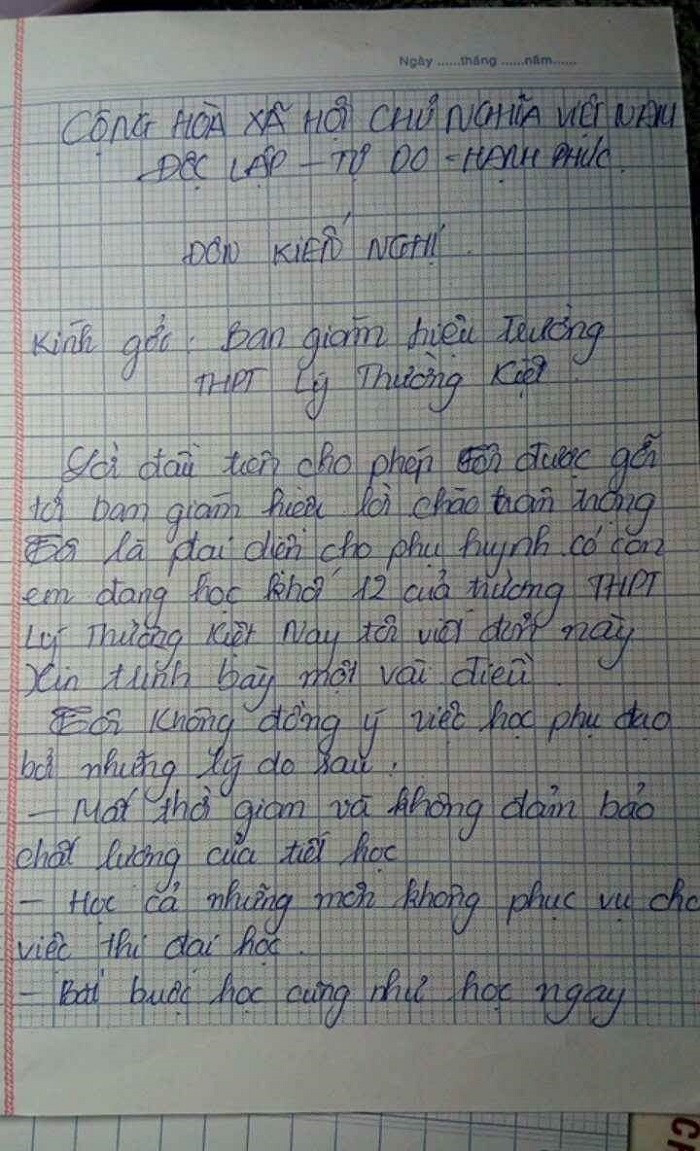 Ngày ......tháng ......năm......
CỘNG HÒA XÃ HỘI CHỦ NGHĨA VIỆT NAM
ĐỘC LẬP - TỰ DO - HẠNH PHÚC.
ĐƠN KIẾN NGHỊ.
Kính gửi: Ban giám hiệu trường
THPT Lý Thường Kiệt.
Lời đầu tiên cho phép tôi được gởi
tới ban giám hiệu lời chào trân trọng
Tôi là đại diện cho phụ huynh có con
em đang học khối 12 của trường THPT
Lý Thường Kiệt Nay tôi viết đơn này
Xin trình bày một vài điều.
Tôi không đồng ý việc học phụ đạo
bởi những lý do sau:
- Mất thời gian và không đảm bảo
chất lượng của tiết học
- Học cả những môn không phục vụ cho
việc thi đại học.
- Bắt buộc học cũng như học ngày